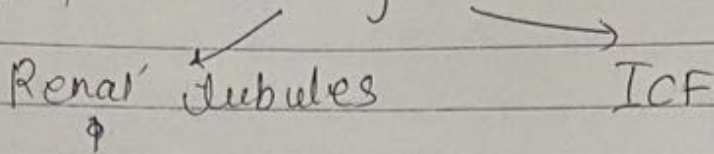 Renal tubules ICF